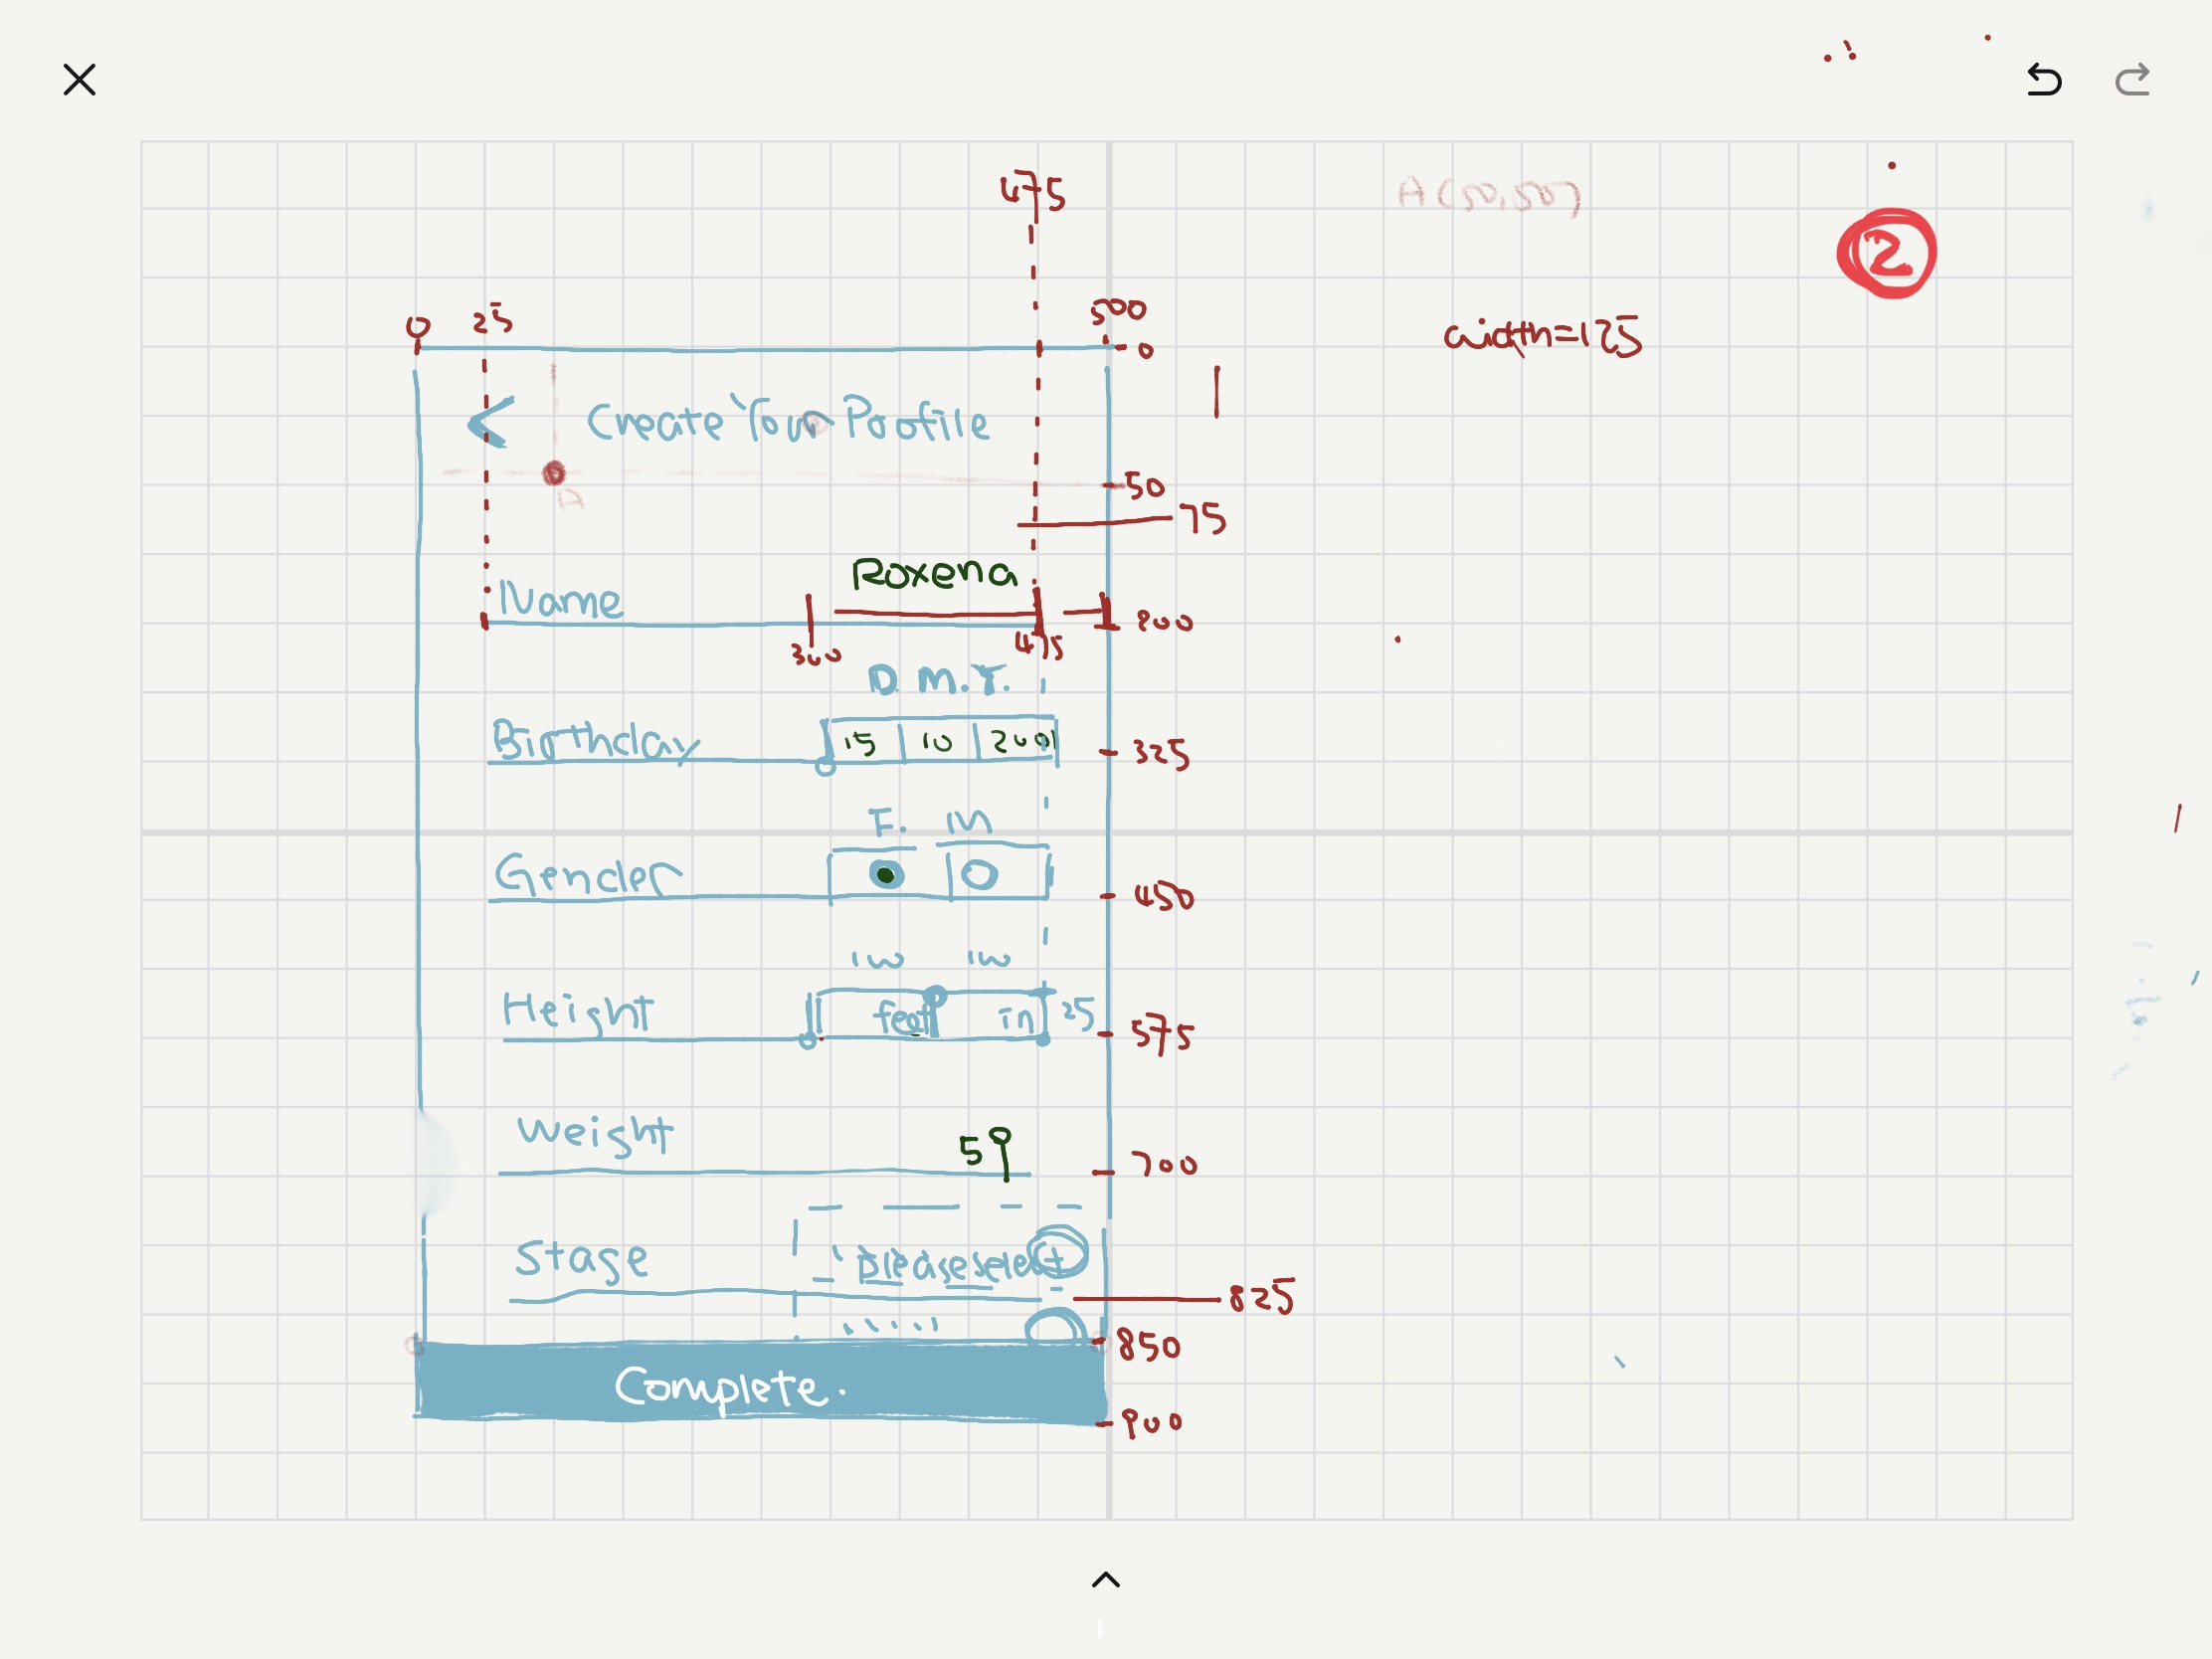 475
A(50,50)
2
0 25 500
0
width=125
Create Your Profile
50
A
75
Roxena
Name
200
300 475
D. M. Y.
Birthday 15 10 2001 325
F. M
Gender
450
100 100
Height feet in 25
575
Weight 59 700
Stage Please select
825
850
Complete.
900